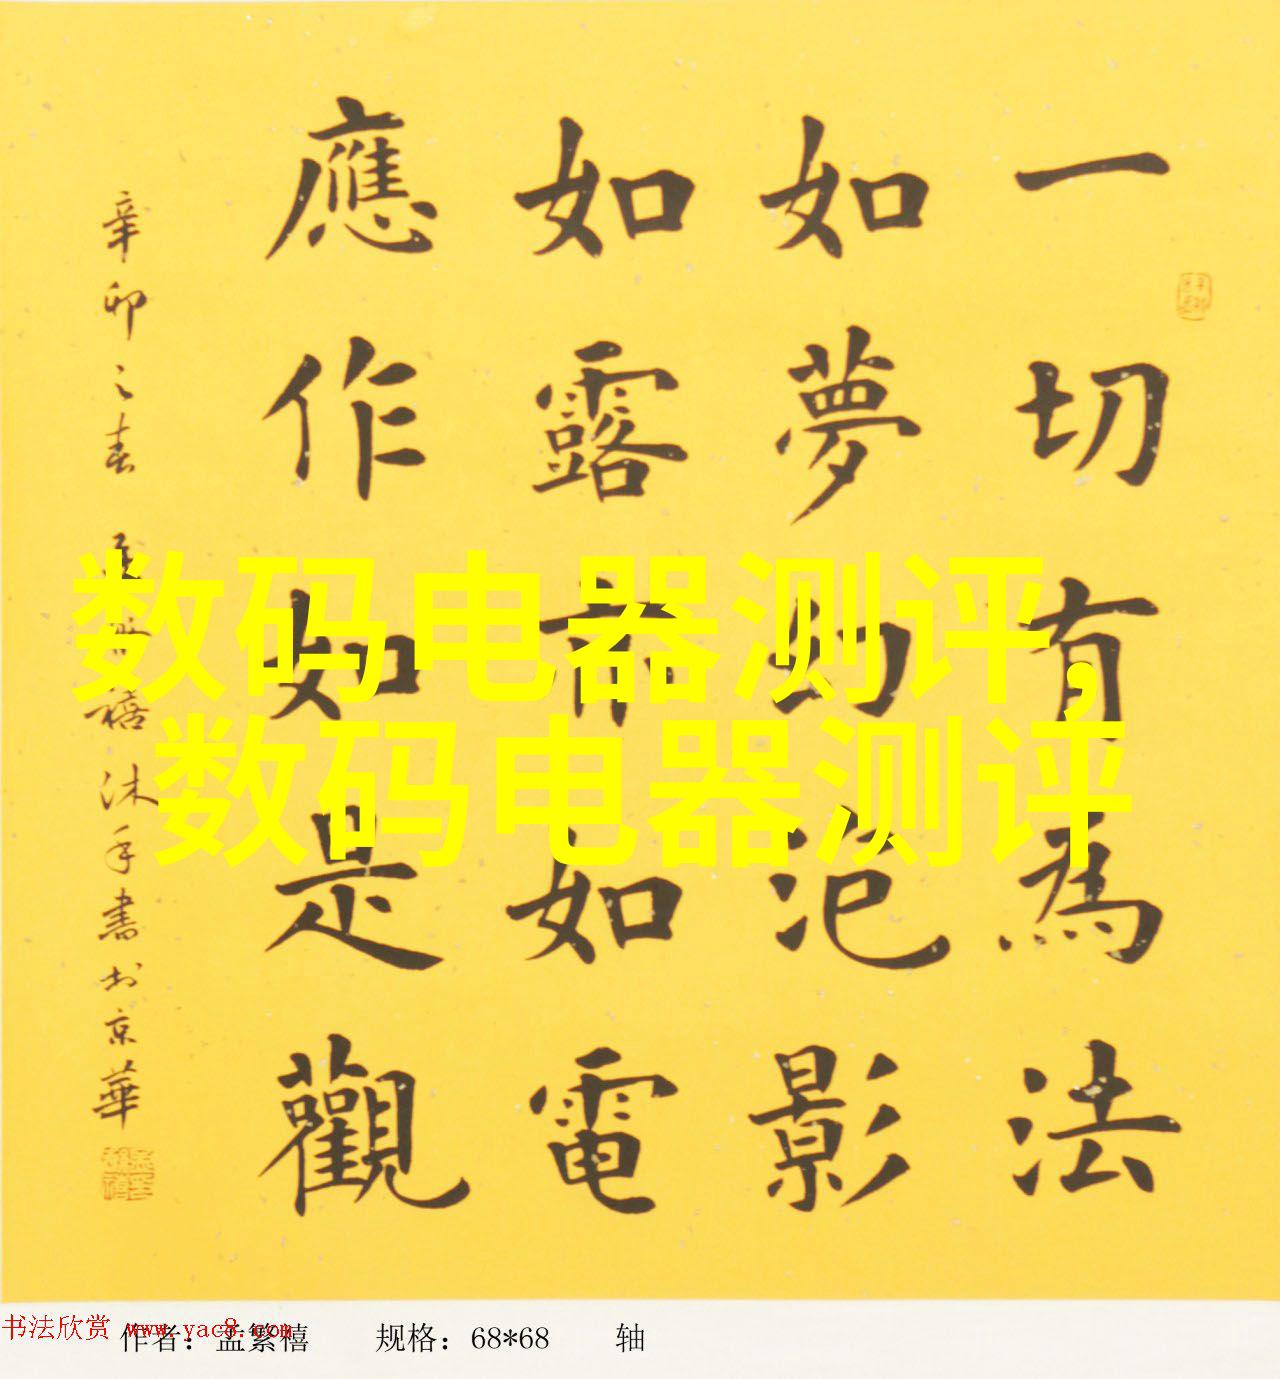 一切有為法
如夢幻泡影
如露亦如電
應作如是觀
辛卯之春 孟繁禧沐手書於京華
数码电器测评,
数码电器测评
书法欣赏 www.yac8.com
作者：孟繁禧 规格：68*68 轴